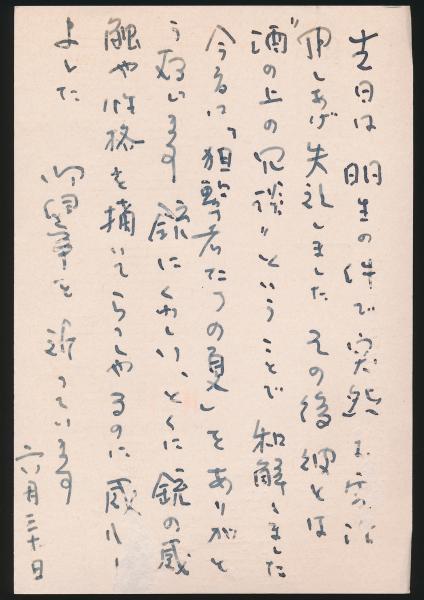 去日は 明生の件で突然お電話
申しあげ失礼しました その後 彼とは
"酒の上の冗談"ということで 和解しました
今日は「狙撃者たちの夏」をありがと
う存じます 銃にくわしい、とくに 銃の感
触や性格を描いてらっしゃるのに感心し
ました
御健筆を 祈っています
六月三十日